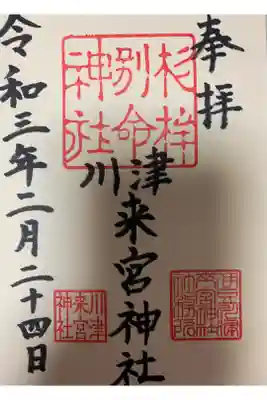 奉拝
杉桙
別命
神社
川津
来宮神社
川津
来宮
神社
令和三年二月二十四日